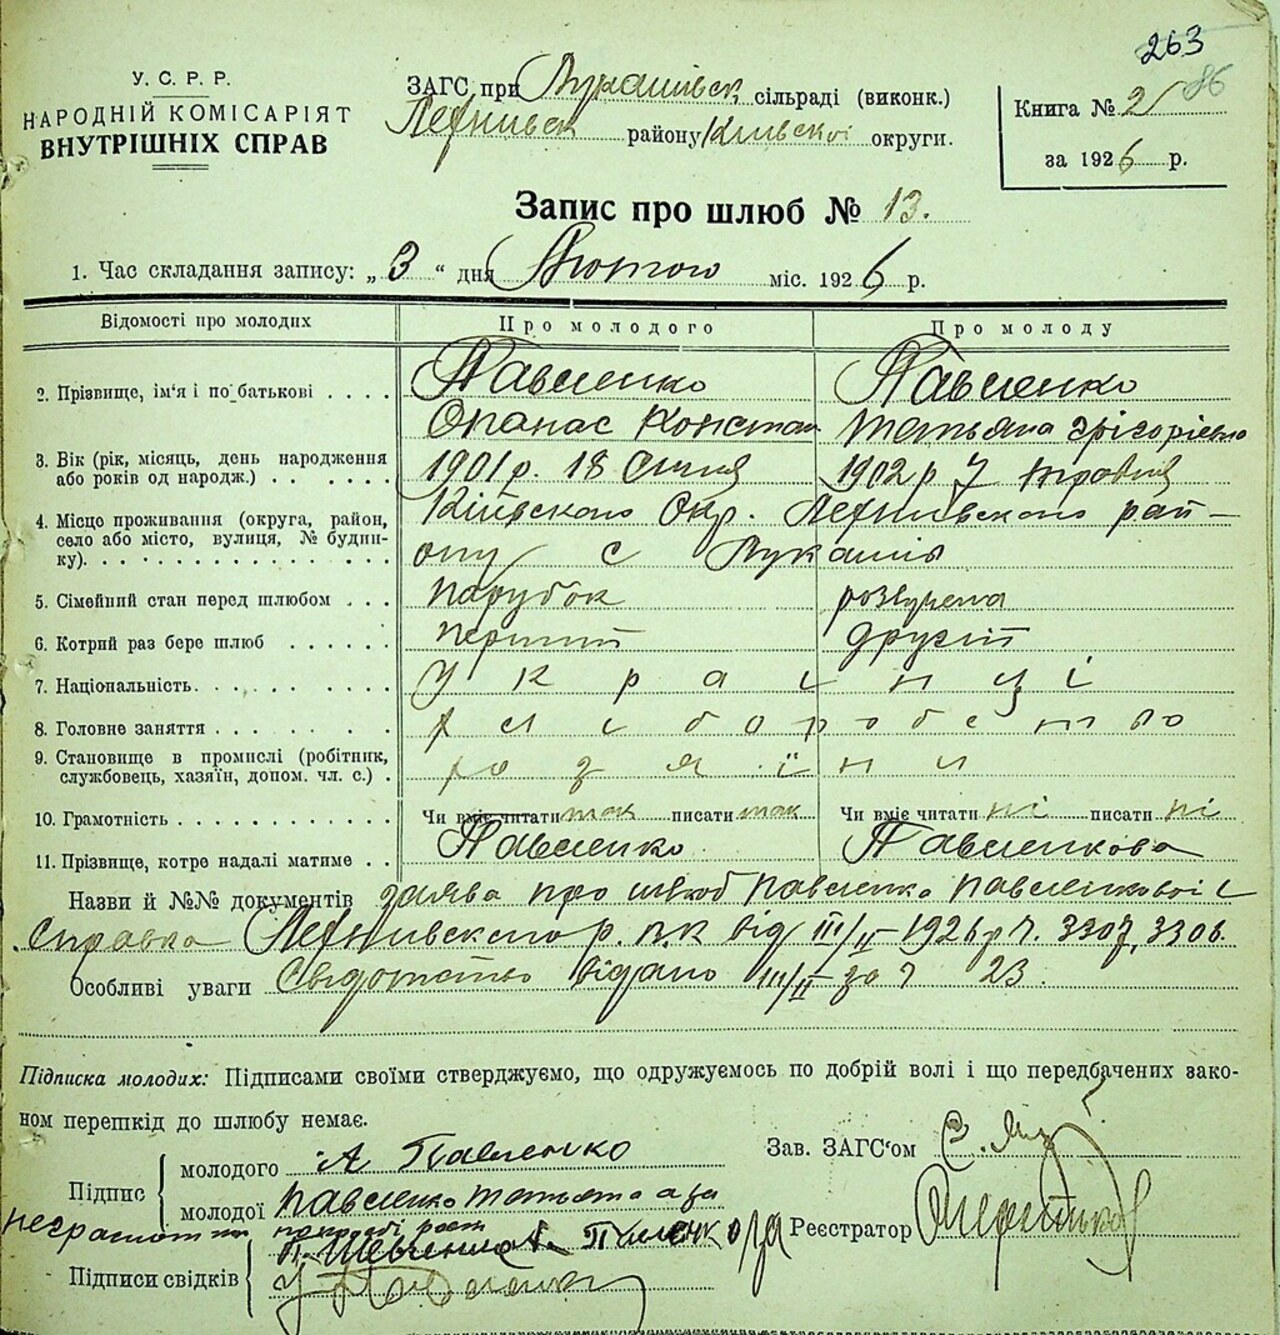 263
86
У. С. Р. Р.
НАРОДНІЙ КОМІСАРІЯТ
ВНУТРІШНІХ СПРАВ
ЗАГС при Лукашівск сільраді (виконк.)
району Київскоі округи.
Книга № 2
за 1926 р.
Запис про шлюб № 13.
1. Час складання запису: „3“ дня Лютого міс. 1926 р.
Відомості про молодих Про молодого Про молоду
2. Прізвище, ім'я і по батькові . . . . Павленко Павленко
Опанас Констан Татьяна Грігорієвна
3. Вік (рік, місяць, день народження 1901 р. 18 Січня 1902 р 7 травня
або років од народж.) . . . . . .
4. Місце проживання (округа, район, Київского Окр. рай-
село або місто, вулиця, № будин- ону с Лукаші
ку). . . . . . . . . . . . . . .
5. Сімейний стан перед шлюбом . . . парубок розвучена
6. Котрий раз бере шлюб . . . . . . перший другій
7. Національність. . . . . . . . . . українці
8. Головне заняття . . . . . . . . хліборобство
9. Становище в промислі (робітник, хозяїни
службовець, хазяїн, допом. чл. с.) .
10. Грамотність . . . . . . . . . . . . Чи вміє читати так писати так Чи вміє читати ні писати ні
11. Прізвище, котре надалі матиме . . Павленко Павленкова
Назви й №№ документів заява про шлюб Павленко Павленковоі і
Справка р. в.к від III/II 1926 р ч. 3307, 3306.
Особливі уваги Свідотство відано III/II за ч 23.
Підписка молодих: Підписами своїми стверджуємо, що одружуємось по добрій волі і що передбачених зако-
ном перешкід до шлюбу немає.
Підпис молодого А Павленко
молодої Павленко Татьяна а за
неграмотну
П. Шевченко
Підписи свідків
Зав. ЗАГС'ом
Реєстратор